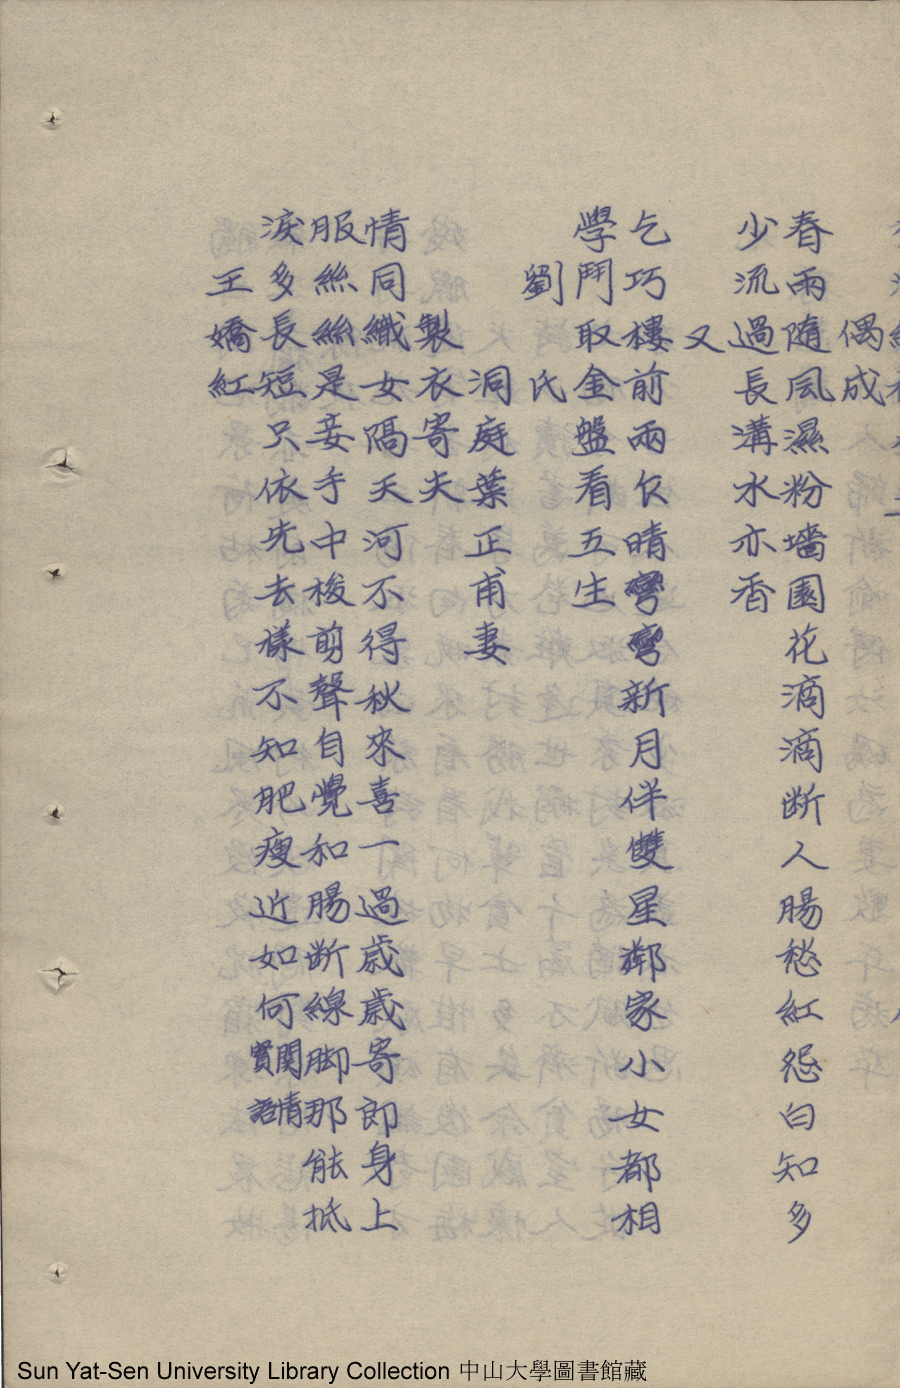 偶成
春雨随風濕粉墻園花滴滴断人腸愁紅怨白知多
少流過長溝水亦香
又
乞巧樓前雨乍晴彎彎新月伴雙星鄰家小女都相
學鬥取金盤看五生
劉氏
洞庭葉正甫妻
製衣寄夫
情同織女隔天河不得秋來喜一過歲歲寄郎身上
服絲絲是妾手中梭剪聲自覺和腸断線脚那能抵
淚多長短只依先去樣不知肥瘦近如何
関情
實語
王嬌紅
Sun Yat-Sen University Library Collection 中山大學圖書館藏